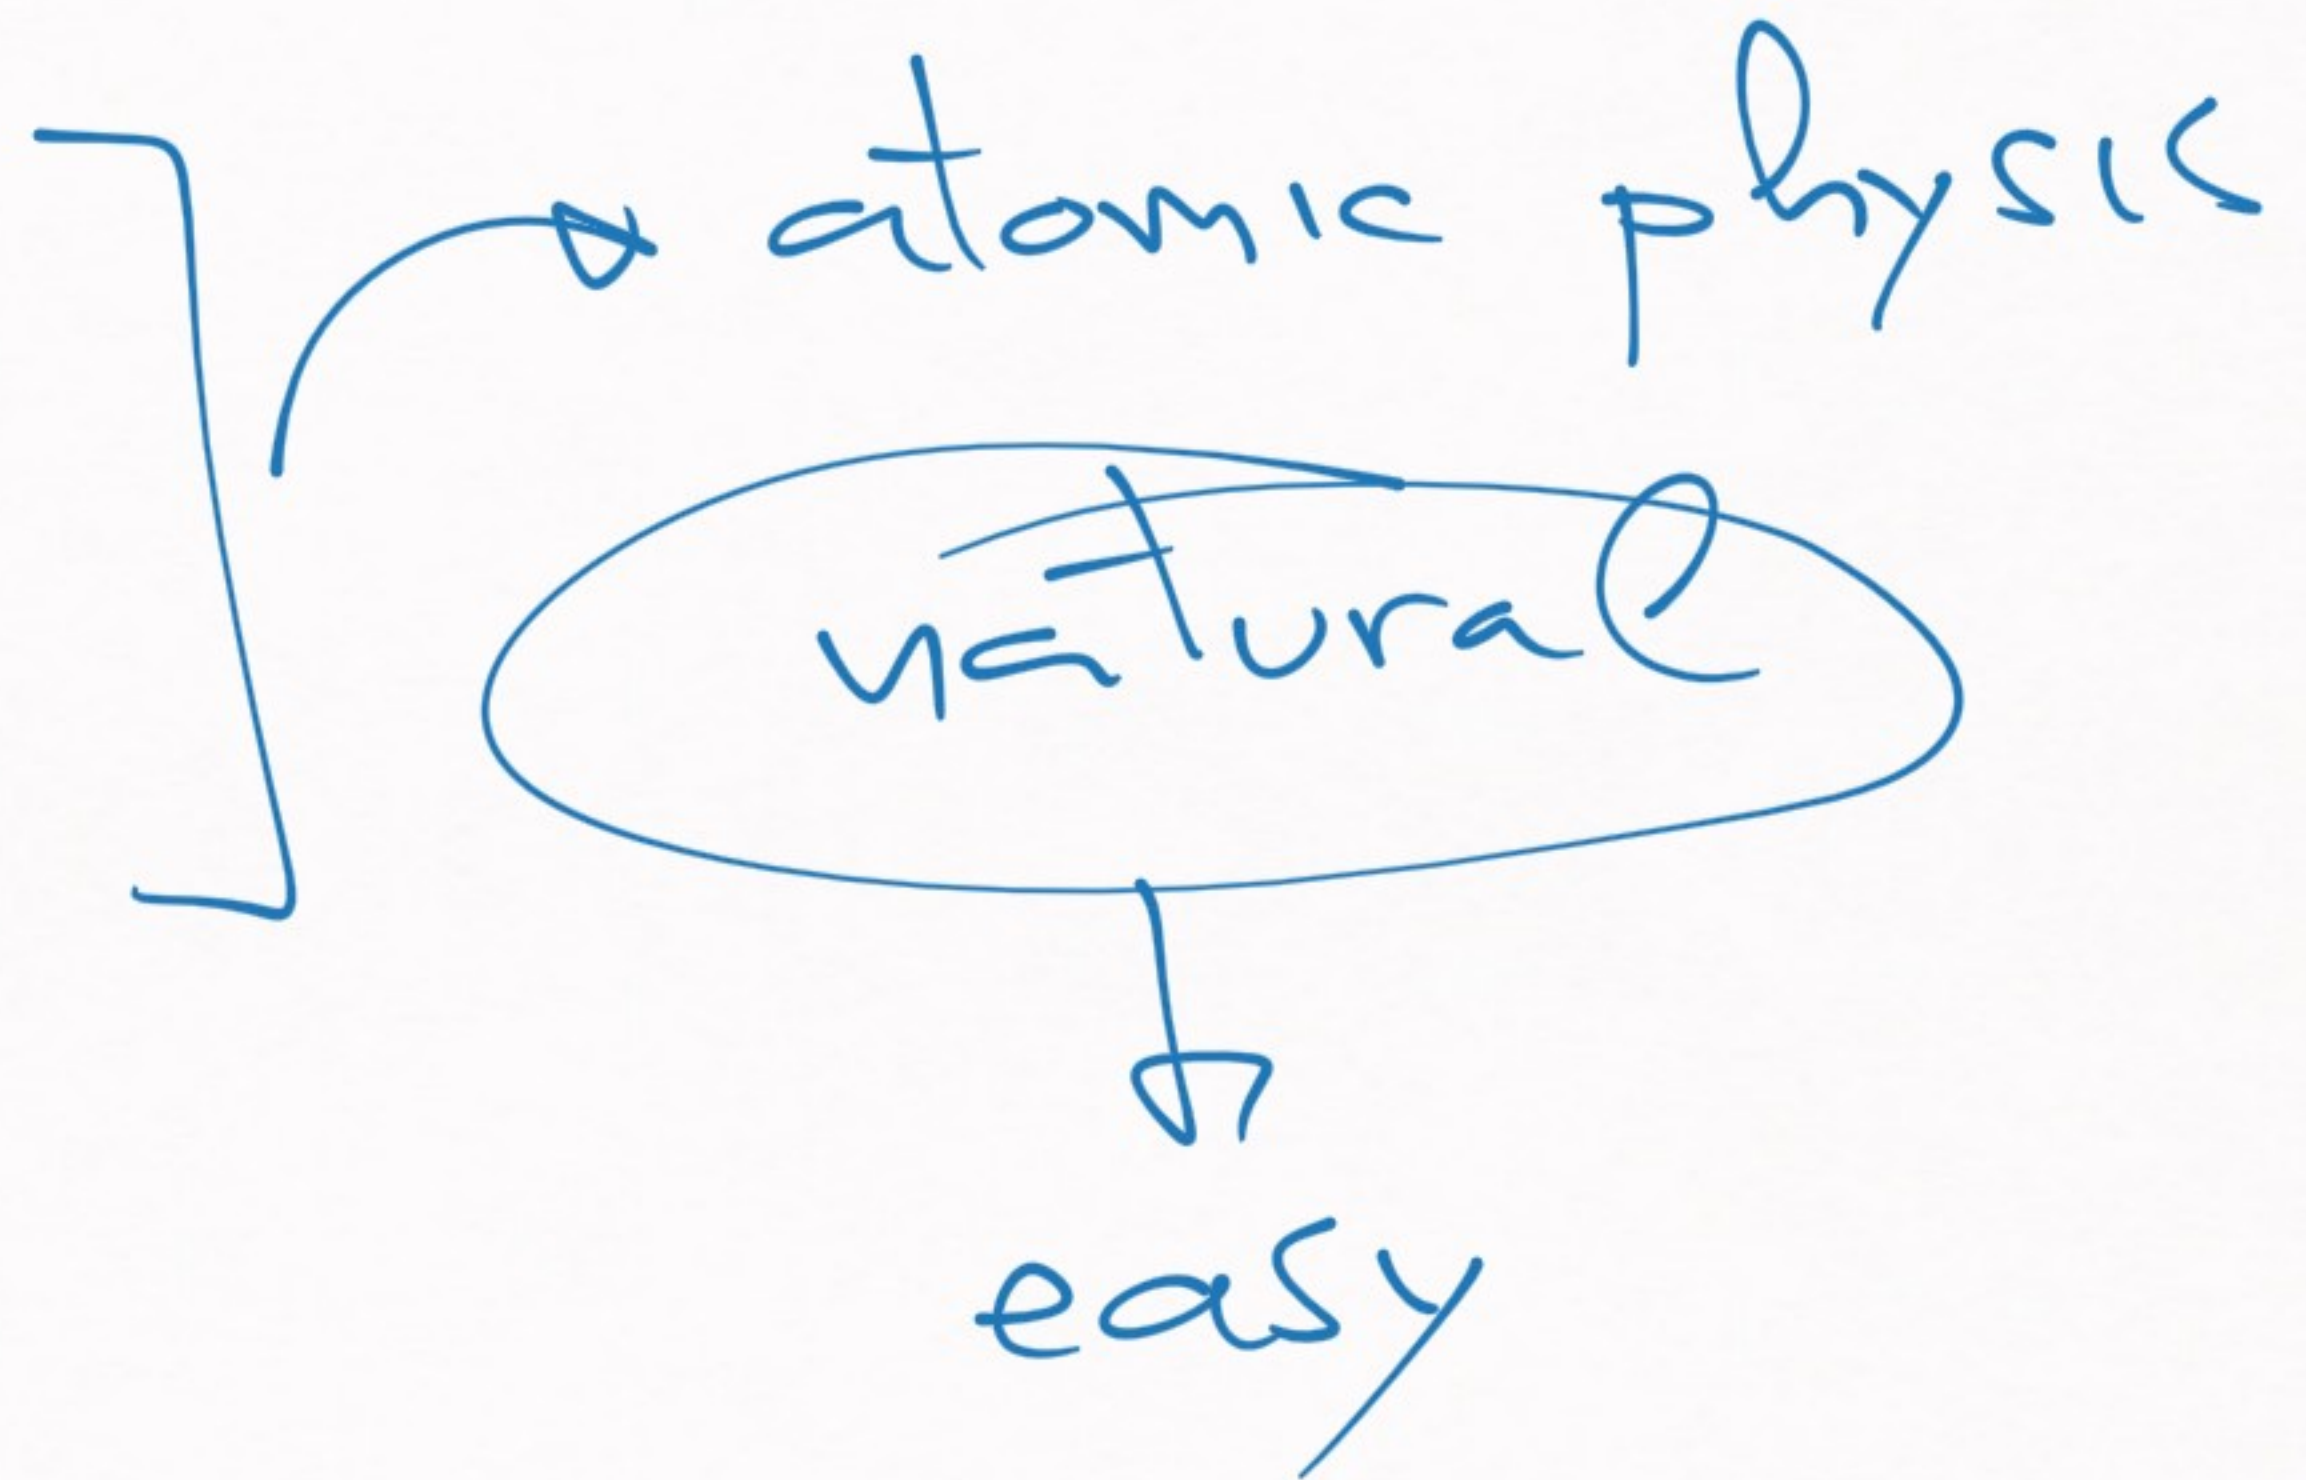 atomic physic
natural
easy